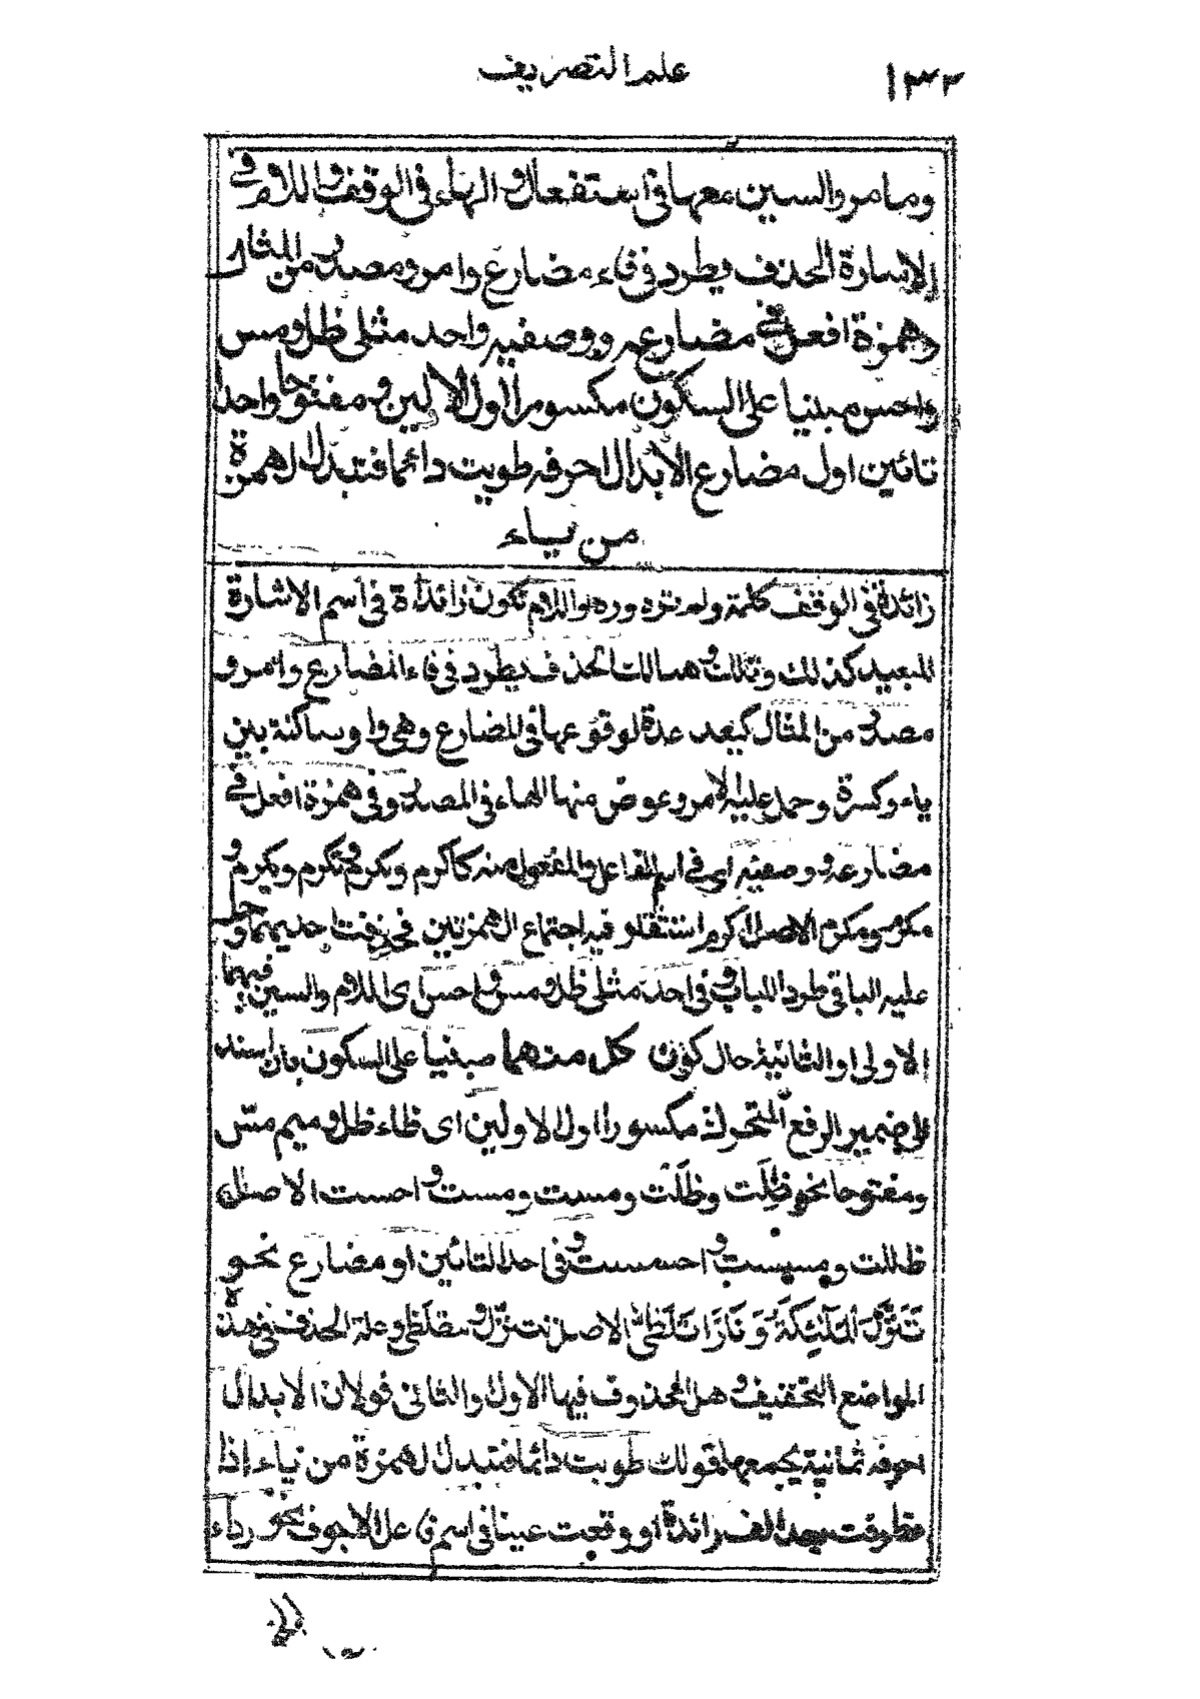 ١٣٢
علم التصريف
وما مر والسين معها في استفعال والهاء في الوقف واللام في
الاشارة الحذف يطرد في فاء مضارع وامر ومصدر من المثال
وهمزة افعل في مضارعه ووصفيه واحد مثلى ظل ومس
واحس مبنيا على السكون مكسورا اول الاولين ومفتوحا واحدا
تائين اول مضارع الابدال احرفه طويت دائما فتبدل الهمزة
من ياء
زائدة في الوقف كلمة ولم نره وره واللام تكون زائدة في اسم الاشارة
للبعيد كذلك وتلك وهنالك الحذف يطرد في فاء المضارع وامر و
مصدر من المثال كيعد عدة لوقوعها في المضارع وهي واو ساكنة بين
ياء وكسرة وحمل عليه الامر وعوض منها الهاء في المصدر وفي همزة افعل في
مضارعه ووصفيه اى في اسم الفاعل والمفعول منه كاكرم ويكرم وتكرم ونكرم و
مكرم ومكرم الاصل اأكرم استثقلو فيه اجتماع الهمزتين فحذفت احديهما وحمل
عليه الباقي طردا للباب وفي احد مثلى ظل ومس واحس اى اللام والسين فيهما
الاولى او الثانية حال كون كل منهما مبنيا على السكون بان اسند
الى ضمير الرفع المتحرك مكسورا اول الاولين اى ظاء ظل وميم مس
ومفتوحا نحو ظلت وظلت ومست ومست واحست الاصل
ظللت ومسست واحسست وفي احد التائين او مضارع نحو
تَنَزَّلُ الْمَلٰئِكَةُ وَ نَارًا تَلَظّٰى الاصل تتنزل وتتلظى وعلة الحذف في هذه
المواضع التخفيف وهل المحذوف فيها الاول والثاني قولان الابدال
احرفه ثمانية يجمعها قولك طويت دائما فتبدل الهمزة من ياء اذا
تطرفت بعد الف زائدة او وقعت عينا في اسم فاعل الاجوف نحو رداء